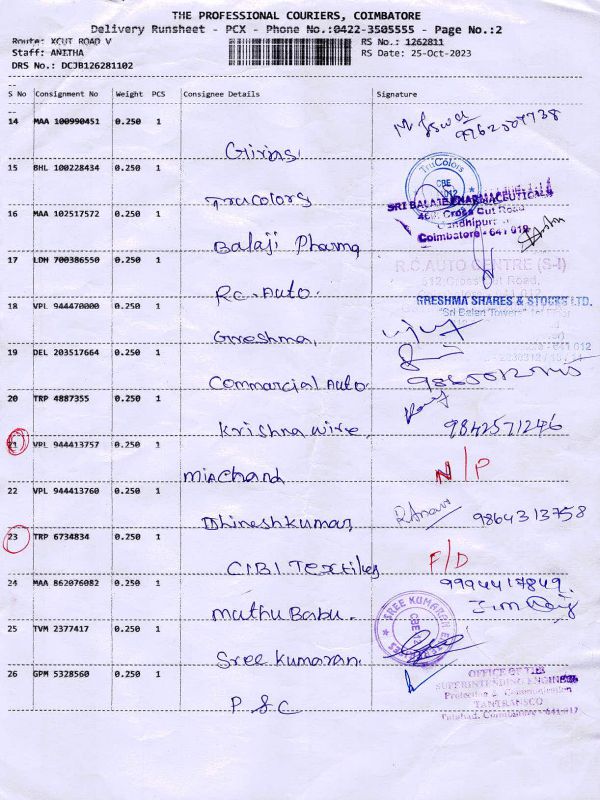 THE PROFESSIONAL COURIERS, COIMBATORE
Delivery Runsheet - PCX - Phone No.:0422-3505555 - Page No.:2
Route: XCUT ROAD V RS No.: 1262811
Staff: ANITHA RS Date: 25-Oct-2023
DRS No.: DCJB126281102
S No Consignment No Weight PCS Consignee Details Signature
14 MAA 100990451 0.250 1
9962507738
Girias
15 BHL 100228434 0.250 1
TruColors
CBE
012
Trucolors
SRI BALAJI PHARMACEUTICALS
16 MAA 102517572 0.250 1
Cross Cut Road
Gandhipuram
Coimbatore - 641 012
Balaji Pharma
17 LDH 700386550 0.250 1
R.C.AUTO CENTRE (S-I)
512, Cross Cut Road,
Rc. Auto.
GRESHMA SHARES & STOCKS LTD.
18 VPL 944470000 0.250 1
"Sri Balan Towers" 1st Floor
Greshma,
19 DEL 203517664 0.250 1
Commercial Auto.
20 TRP 4887355 0.250 1
9842571246
Krishna wire,
21 VPL 944413757 0.250 1
N/P
Miachand
22 VPL 944413760 0.250 1
9864313758
Dhineshkumar
23 TRP 6734834 0.250 1
F/D
CIBI Textiles
24 MAA 862076082 0.250 1
9994417849
Muthu Babu.
SREE KUMARAN
25 TVM 2377417 0.250 1
CBE
Sree Kumaran.
26 GPM 5328560 0.250 1
OFFICE OF THE
SUPERINTENDING ENGINEER
Protection & Communication
TANTRANSCO
Tatabad, Coimbatore - 641 012
P & C